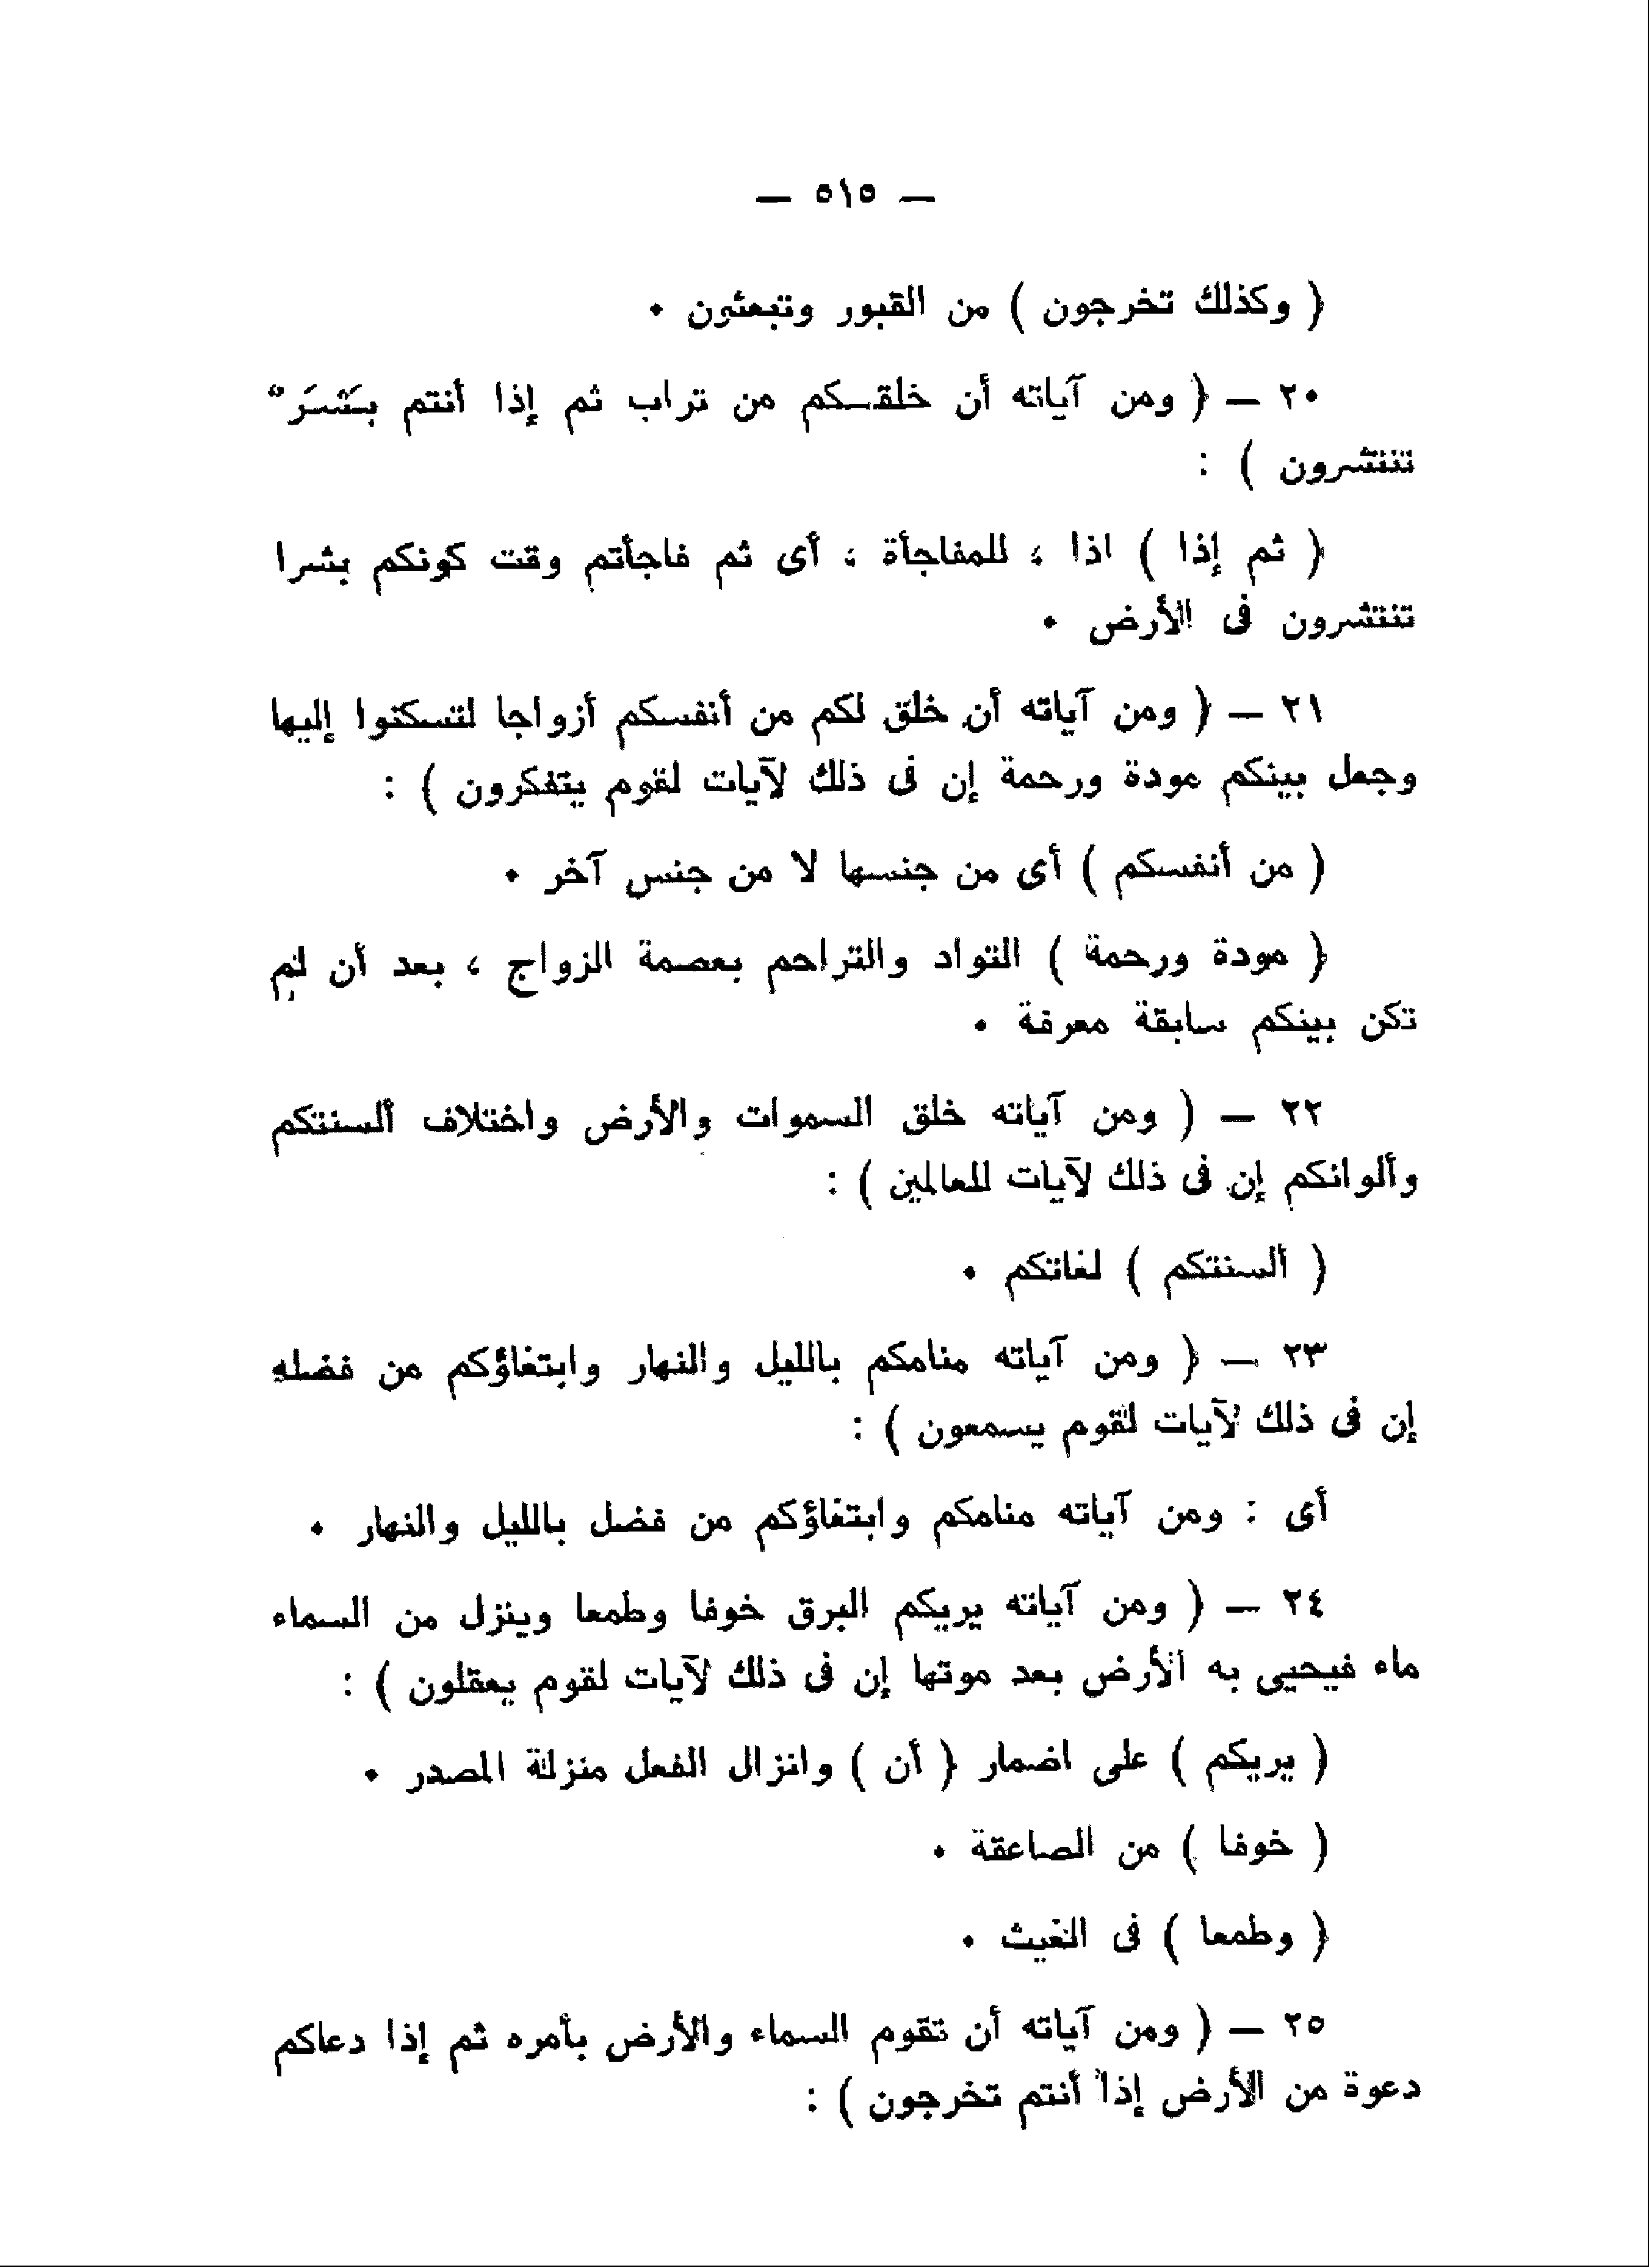 — ٥١٥ —
( وكذلك تخرجون ) من القبور وتبعثون ٠
٢٠ — ( ومن آياته أن خلقكم من تراب ثم إذا أنتم بَشَرٌ
تنتشرون ) :
( ثم إذا ) اذا ، للمفاجأة ، أى ثم فاجأتم وقت كونكم بشرا
تنتشرون فى الأرض ٠
٢١ — ( ومن آياته أن خلق لكم من أنفسكم أزواجا لتسكنوا إليها
وجعل بينكم مودة ورحمة إن فى ذلك لآيات لقوم يتفكرون ) :
( من أنفسكم ) أى من جنسها لا من جنس آخر ٠
( مودة ورحمة ) التواد والتراحم بعصمة الزواج ، بعد أن لم
تكن بينكم سابقة معرفة ٠
٢٢ — ( ومن آياته خلق السموات والأرض واختلاف ألسنتكم
وألوانكم إن فى ذلك لآيات للعالمين ) :
( ألسنتكم ) لغاتكم ٠
٢٣ — ( ومن آياته منامكم بالليل والنهار وابتغاؤكم من فضله
إن فى ذلك لآيات لقوم يسمعون ) :
أى : ومن آياته منامكم وابتغاؤكم من فضل بالليل والنهار ٠
٢٤ — ( ومن آياته يريكم البرق خوفا وطمعا وينزل من السماء
ماء فيحيى به الأرض بعد موتها إن فى ذلك لآيات لقوم يعقلون ) :
( يريكم ) على اضمار ( أن ) وانزال الفعل منزلة المصدر ٠
( خوفا ) من الصاعقة ٠
( وطمعا ) فى الغيث ٠
٢٥ — ( ومن آياته أن تقوم السماء والأرض بأمره ثم إذا دعاكم
دعوة من الأرض إذا أنتم تخرجون ) :